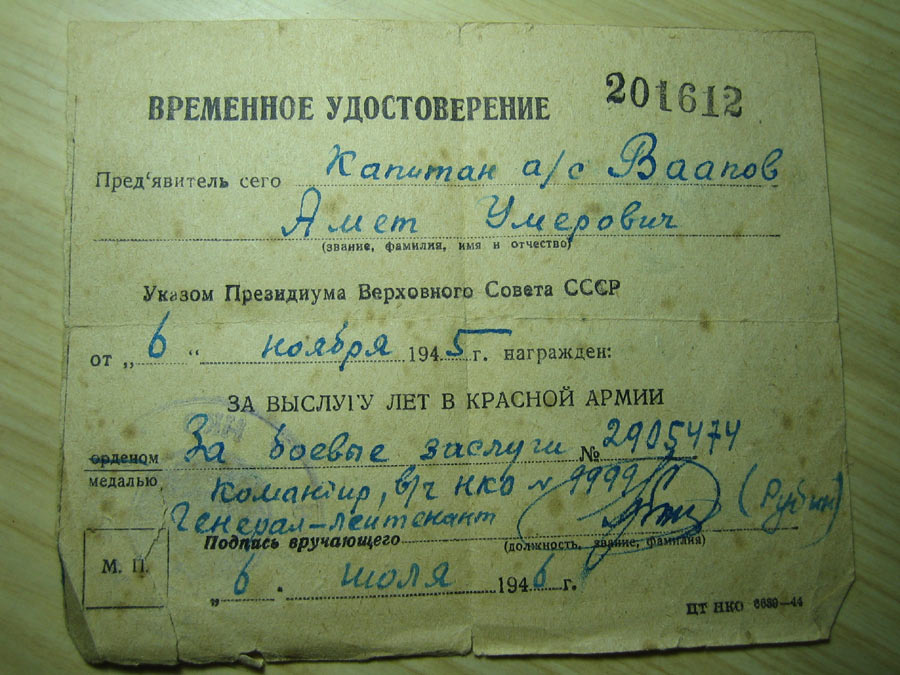 ВРЕМЕННОЕ УДОСТОВЕРЕНИЕ 201612
Пред'явитель сего Капитан а/с Ваапов
Амет Умерович
(звание, фамилия, имя и отчество)
Указом Президиума Верховного Совета СССР
от „6“ ноября 1945 г. награжден:
ЗА ВЫСЛУГУ ЛЕТ В КРАСНОЙ АРМИИ
орденом За боевые заслуги № 2905474
медалью
Командир, в/ч НКО №
Генерал-лейтенант
Подпись вручающего
(должность, звание, фамилия)
М. П.
„6. июля 1946 г.
ЦТ НКО 6639—44